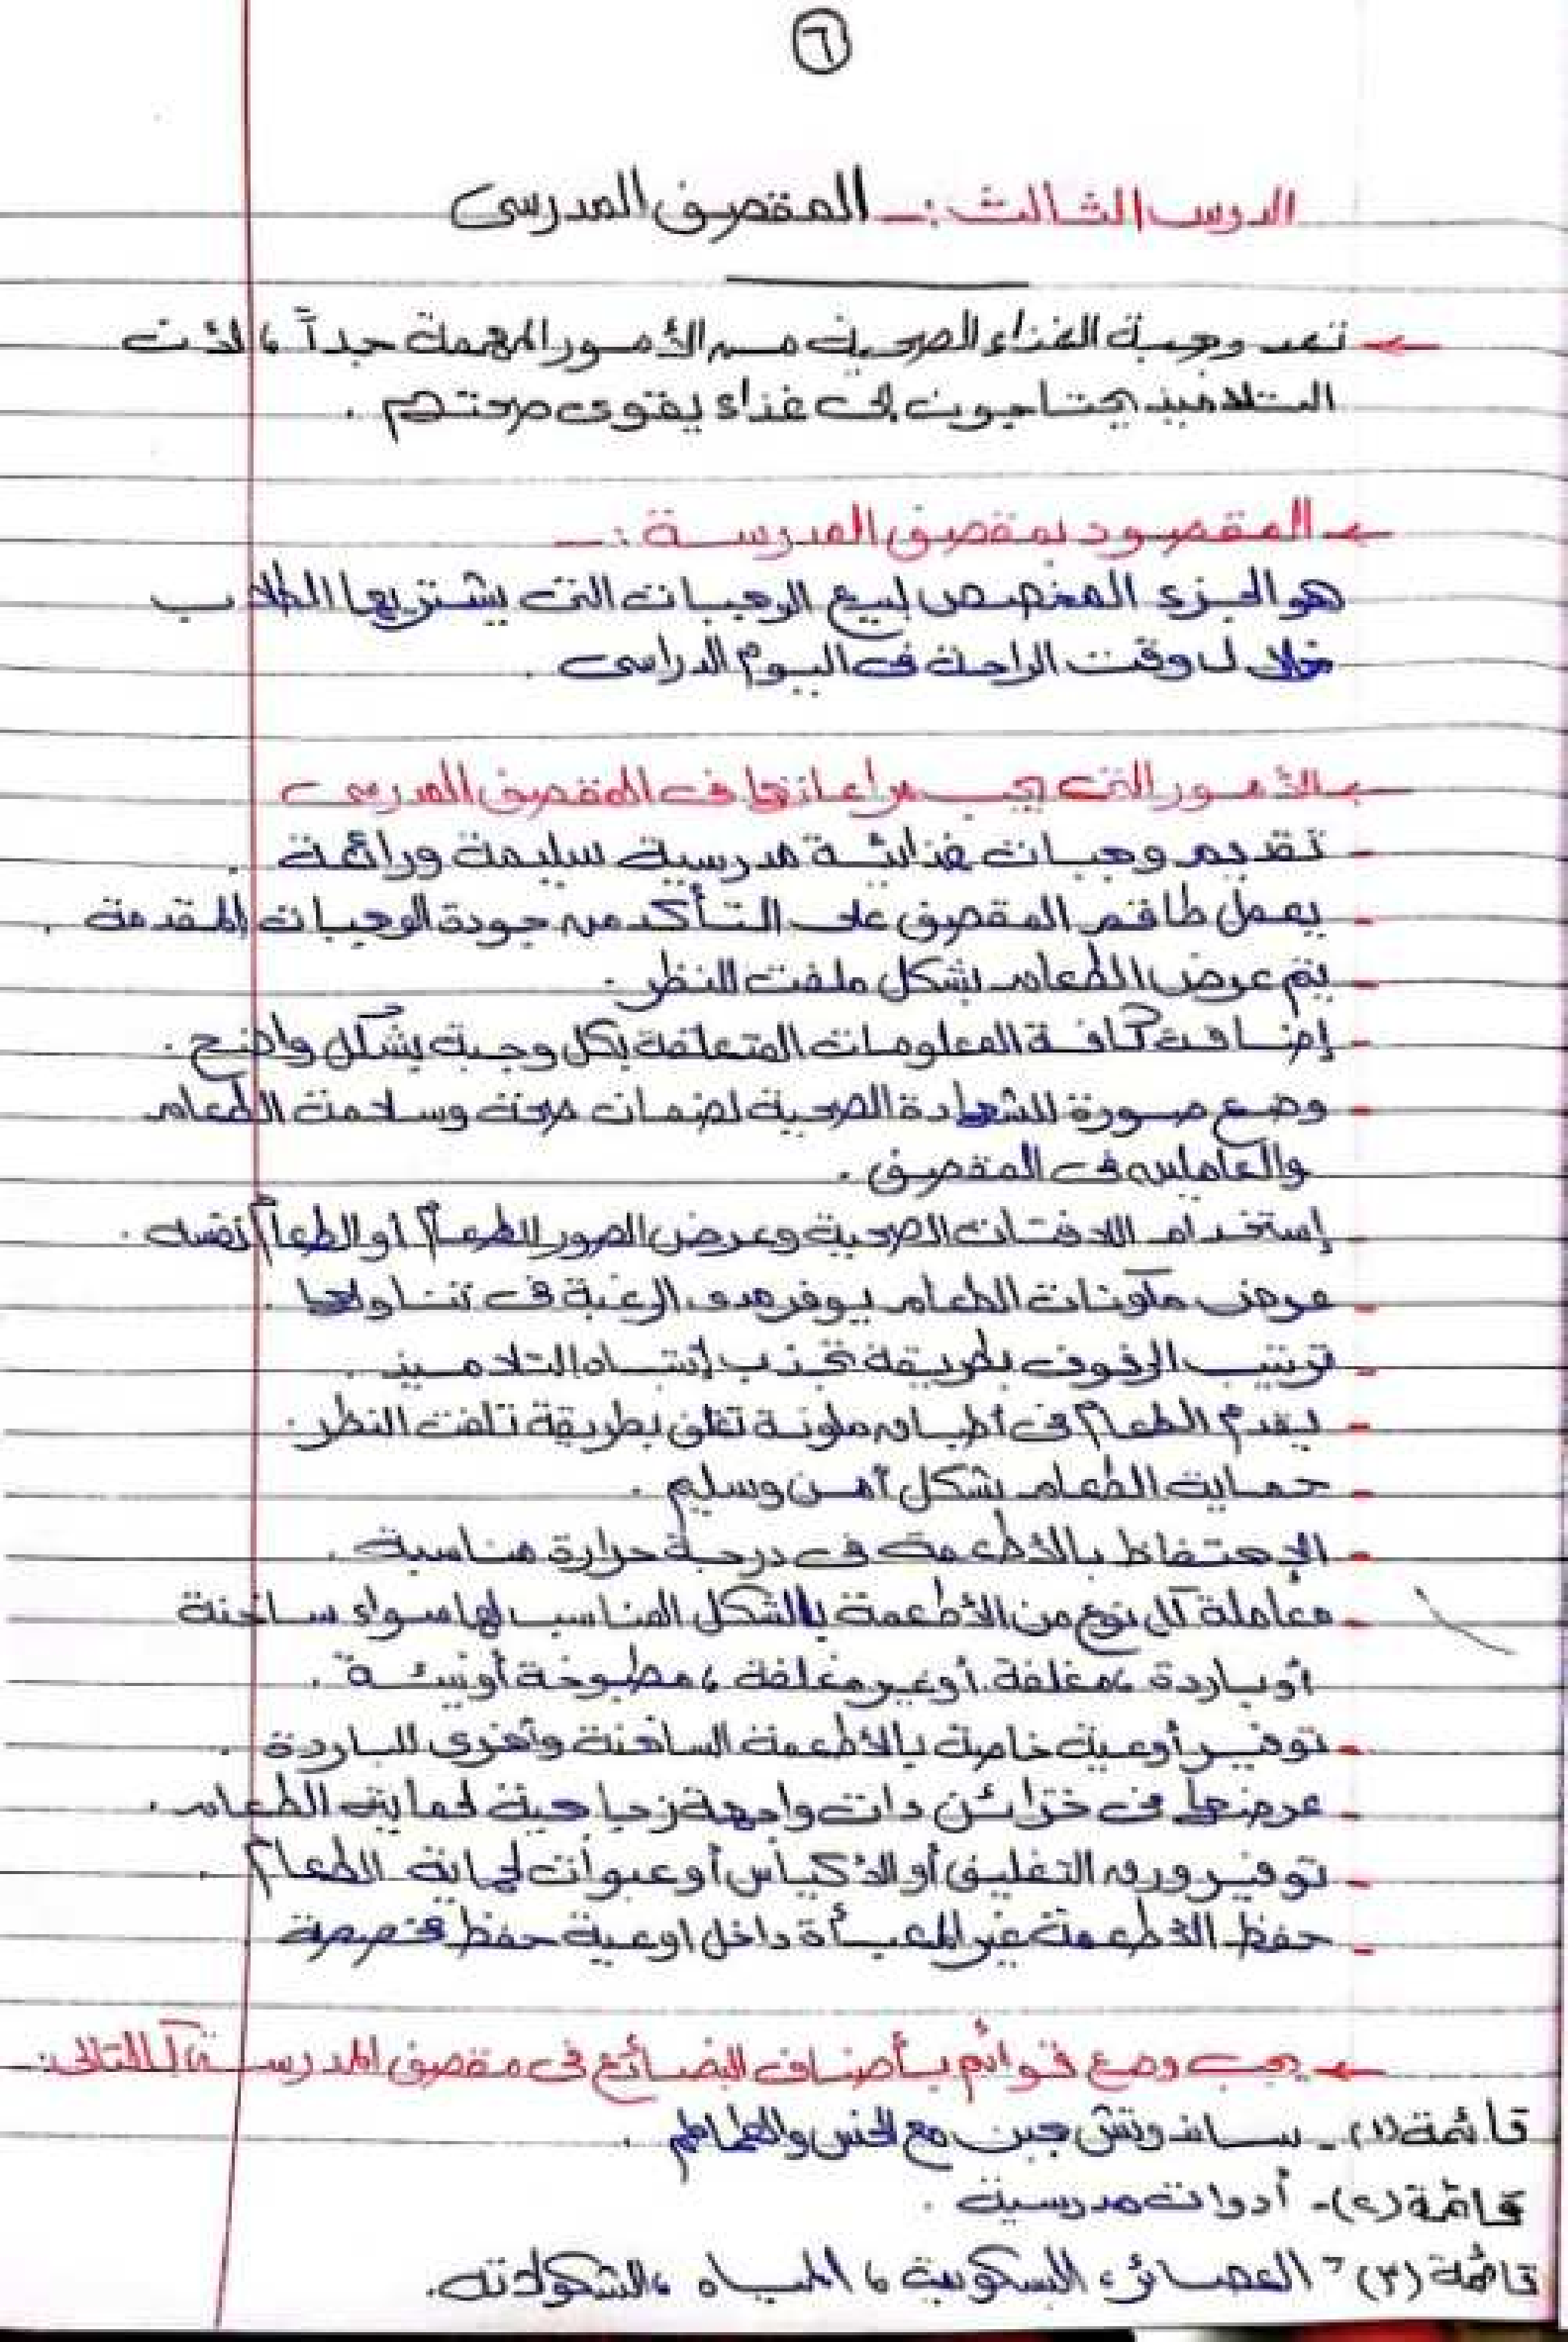 ٦
الدرس الثالث :- المقصف المدرسى
← تعد وجبة الغذاء الصحية من الأمور المهمة جداً ، لأن
التلاميذ يحتاجون إلى غذاء يقوى صحتهم .
← المقصود بمقصف المدرسة :-
هو الجزء المخصص لبيع الوجبات التى يشتريها الطلاب
خلال وقت الراحة فى اليوم الدراسى .
← الأمور التى يجب مراعاتها فى المقصف المدرسى
- تقديم وجبات غذائية مدرسية سليمة ورائعة .
- يعمل طاقم المقصف على التأكد من جودة الوجبات المقدمة .
- يتم عرض الطعام بشكل ملفت للنظر .
- إضافة كافة المعلومات المتعلقة بكل وجبة بشكل واضح .
- وضع صورة للشهادة الصحية لضمان صحة وسلامة الطعام
والعاملين فى المقصف .
- إستخدام اللافتات الصحية وعرض الصور للطعام أو الطعام نفسه .
- عرض مكونات الطعام يوفر مدى الرغبة فى تناولها .
- ترتيب الرفوف بطريقة تجذب إنتباه التلاميذ .
- يقدم الطعام فى أطباق ملونة تغلق بطريقة تلفت النظر .
- حماية الطعام بشكل أمن وسليم .
- الإحتفاظ بالأطعمة فى درجة حرارة مناسبة .
- معاملة كل نوع من الأطعمة بالشكل المناسب لها سواء ساخنة
أو باردة ، مغلفة أو غير مغلفة ، مطبوخة أو نيئة .
- توفير أوعية خاصة بالأطعمة الساخنة وأخرى للباردة .
- عرضها فى خزائن ذات واجهة زجاجية لحماية الطعام .
- توفير ورق التغليف أو الأكياس أو عبوات لحماية الطعام .
- حفظ الأطعمة غير المعبأة داخل اوعية حفظ مخصصة
← يجب وضع قوائم بأصناف البضائع فى مقصف المدرسة كالتالى :
قائمة (١) - ساندوتش جبن مع الخس والطماطم .
قائمة (٢) - أدوات مدرسية .
قائمة (٣) - العصائر ، البسكويت ، المياه ، الشكولاته .